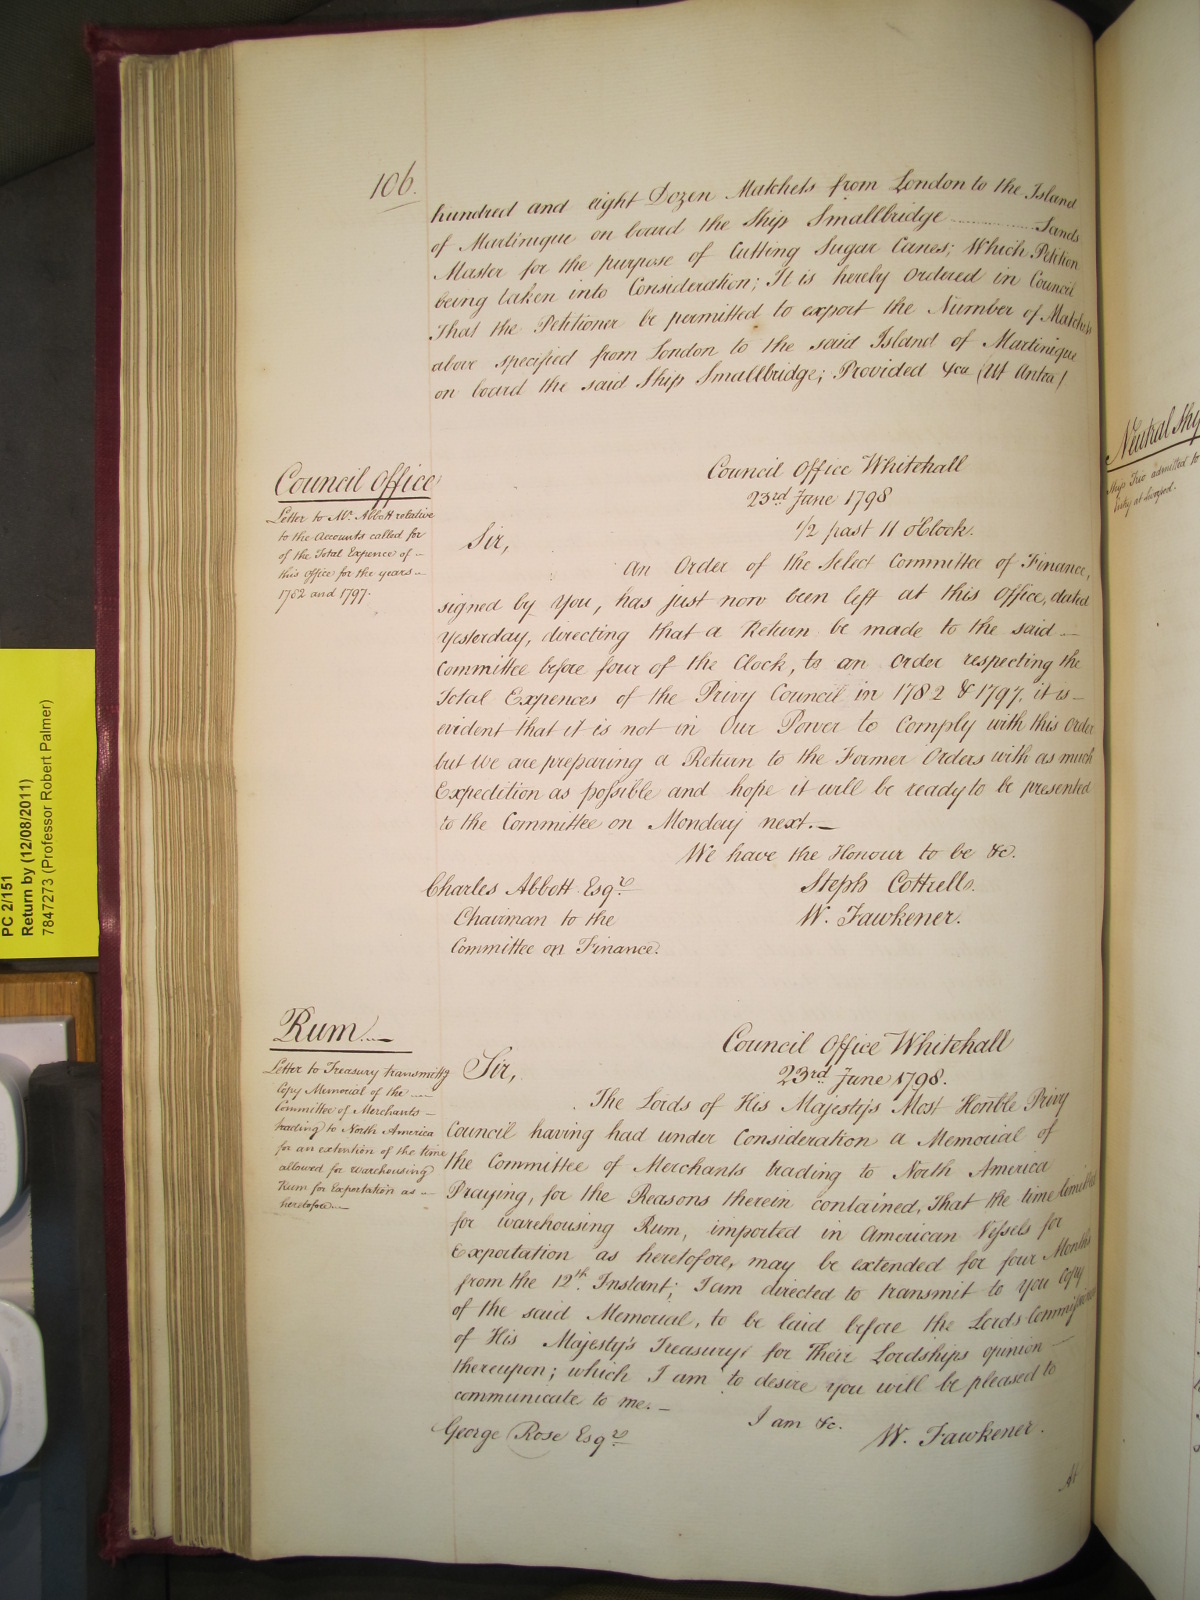 106.
hundred and eight Dozen Matchets from London to the Island
of Martinique on board the Ship Smallbridge ............ Sands
Master for the purpose of Cutting Sugar Canes; Which Petition
being taken into Consideration; It is hereby Ordered in Council
That the Petitioner be permitted to export the Number of Matchets
above specified from London to the said Island of Martinique
on board the said Ship Smallbridge; Provided &ca (Ut Antea)
Council Office
Letter to Mr. Abbott relative
to the Accounts called for
of the Total Expence of –
this office for the years –
1782 and 1797.
Council Office Whitehall
23rd June 1798
1/2 past 11 o'Clock.
Sir,
An Order of the Select Committee of Finance,
signed by You, has just now been left at this Office, dated
Yesterday, directing that a Return be made to the said —
Committee before four of the Clock, to an Order respecting the
Total Expences of the Privy Council in 1782 & 1797, it is –
evident that it is not in Our Power to Comply with this Order
but we are preparing a Return to the Former Orders with as much
Expedition as possible and hope it will be ready to be presented
to the Committee on Monday next. —
We have the Honour to be &c.
Charles Abbott Esqre
Steph Cottrell.
Chairman to the
W. Fawkener.
Committee on Finance.
Rum. —
Letter to Treasury transmitg
Copy Memorial of the —
Committee of Merchants –
trading to North America
for an extention of the time
allowed for warehousing
Rum for Exportation as –
heretofore —
Council Office Whitehall
23rd June 1798.
Sir,
The Lords of His Majesty's Most Honble Privy
Council having had under Consideration a Memorial of
the Committee of Merchants trading to North America
Praying, for the Reasons therein contained, That the time limited
for warehousing Rum, imported in American Vessels for
Exportation as heretofore, may be extended for four Months
from the 12th Instant; I am directed to transmit to you Copy
of the said Memorial, to be laid before the Lords Commissioners
of His Majesty's Treasury, for Their Lordships opinion —
thereupon; which I am to desire you will be pleased to
communicate to me. —
I am &c.
George Rose Esqre
W. Fawkener.
At
Neutral Ship
Ship Trio admitted to
Entry at Liverpool.
PC 2/151
Return by (12/08/2011)
7847273 (Professor Robert Palmer)